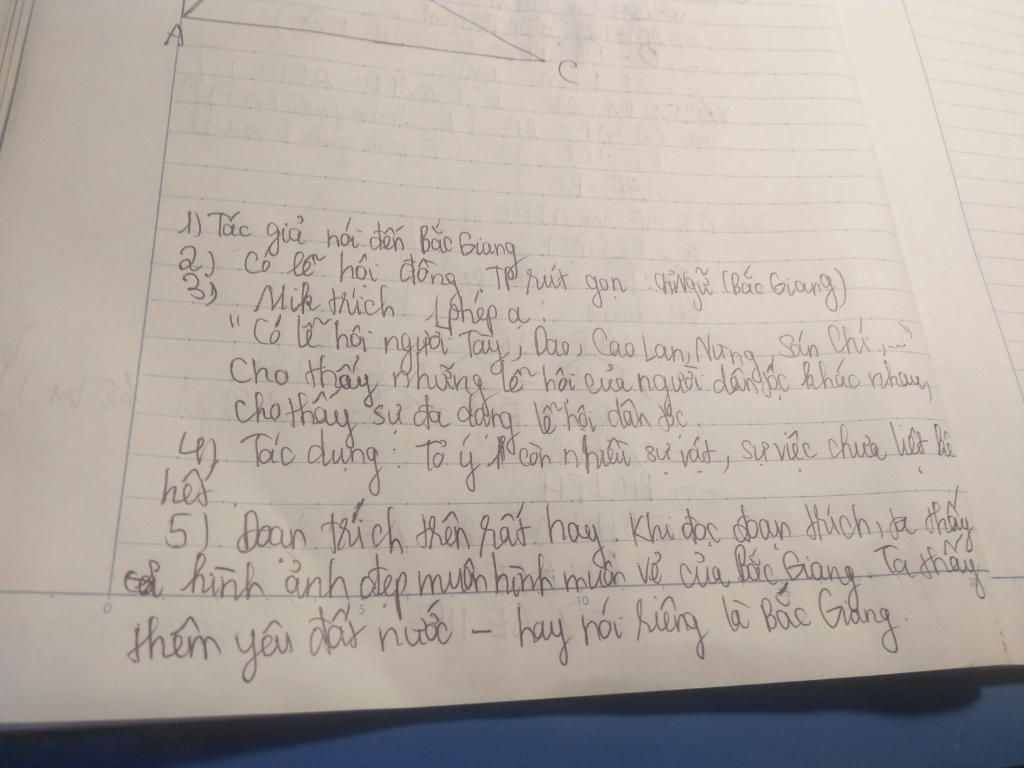 A
C
1) Tác giả nói đến Bắc Giang
2) Có lễ hội đông. TP rút gọn: chủ ngữ (Bắc Giang)
3) Mik trích 1 phép ạ:
"Có lễ hội người Tày, Dao, Cao Lan, Nùng, Sán Chí,..."
Cho thấy những lễ hội của người dân tộc khác nhau,
cho thấy sự đa dạng lễ hội dân tộc.
4) Tác dụng: Tỏ ý còn nhiều sự vật, sự việc chưa liệt kê
hết
5) Đoạn trích trên rất hay. Khi đọc đoạn trích, ta thấy
hình ảnh đẹp muôn hình muôn vẻ của Bắc Giang. Ta thấy
thêm yêu đất nước - hay nói riêng là Bắc Giang.
0 5 10